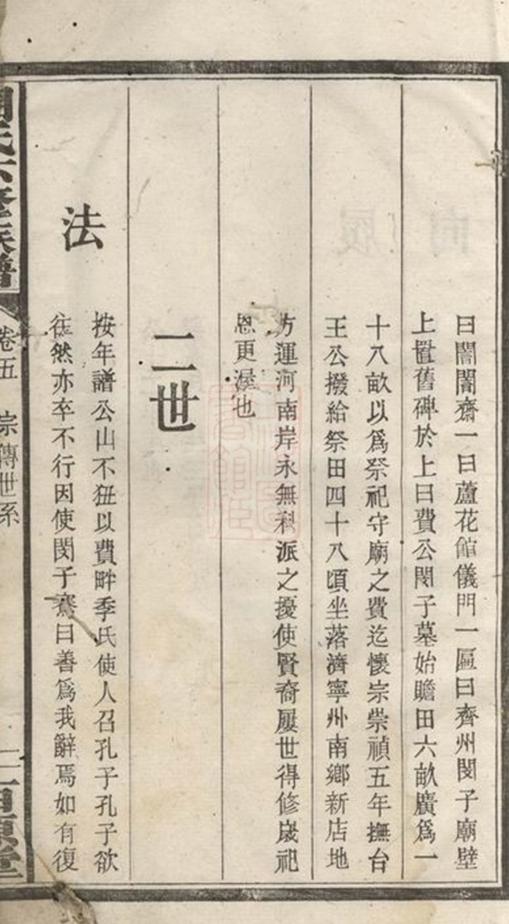 曰誾誾齋一曰蘆花館儀門一區曰齊州閔子廟壁
上置舊碑於上曰費公閔子墓始贍田六畝廣爲一
十八畝以爲祭祀守廟之費迄懷宗崇禎五年撫台
王公撥給祭田四十八頃坐落濟寧州南鄉新店地
方運河南岸永無科派之擾使賢裔屢世得修歲祀
恩更渥也
二世
法
按年譜公山不狃以費畔季氏使人召孔子孔子欲
往然亦卒不行因使閔子騫曰善爲我辭焉如有復
氏六修族譜
卷五
宗傳世系